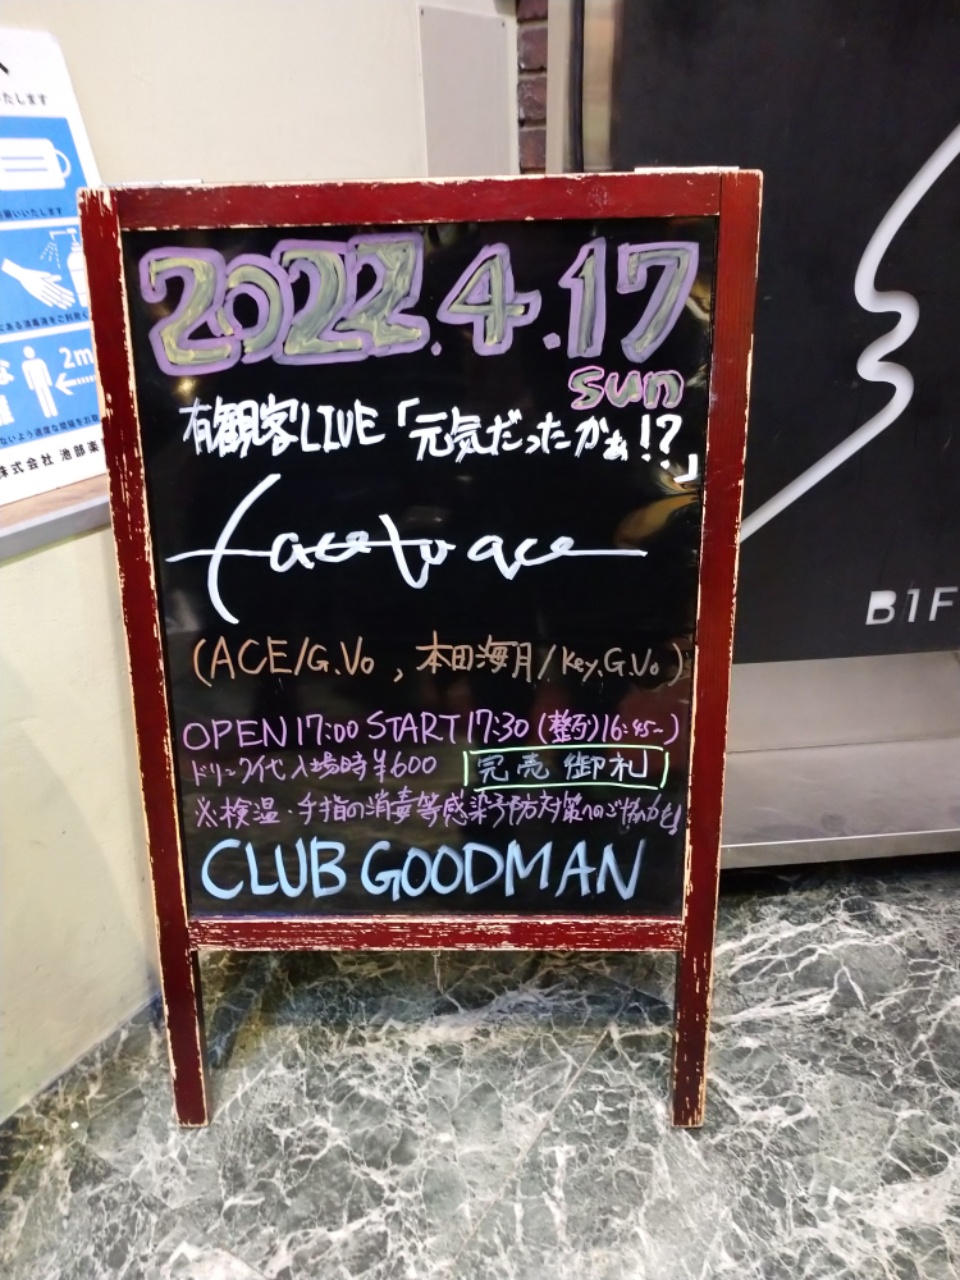 たします
願いいたします
にある消毒液をご利用く
2m
ないよう適度な間隔をお取
株式会社 池部楽
2022.4.17
sun
有観客LIVE「元気だったかぁ!?」
face to ace
(ACE/G.Vo , 本田海月/Key.G.Vo)
OPEN17:00 START17:30 (整列16:45~)
ドリンク代 入場時¥600 完売御礼
※検温・手指の消毒等感染予防対策へのご協力を!
CLUB GOODMAN
B1F